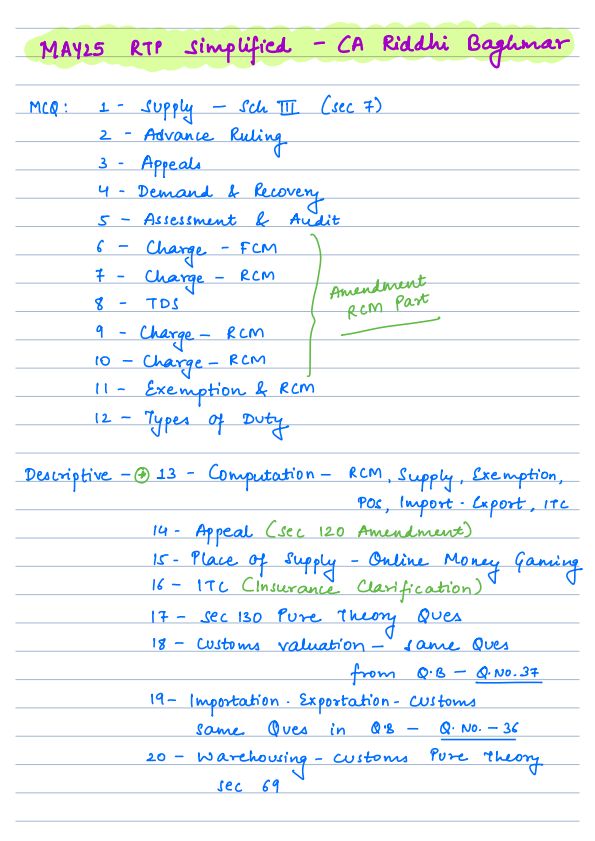 MAY25 RTP Simplified - CA Riddhi Baghmar
MCQ: 1 - Supply - Sch III (sec 7)
2 - Advance Ruling
3 - Appeals
4 - Demand & Recovery
5 - Assessment & Audit
6 - Charge - FCM
7 - Charge - RCM
8 - TDS
9 - Charge - RCM
10 - Charge - RCM
Amendment
RCM Part
11 - Exemption & RCM
12 - Types of Duty
Descriptive - → 13 - Computation - RCM, Supply, Exemption,
POS, Import - Export, ITC
14 - Appeal (Sec 120 Amendment)
15 - Place of Supply - Online Money Gaming
16 - ITC (Insurance Clarification)
17 - Sec 130 Pure Theory Ques
18 - Customs valuation - same Ques
from Q.B - Q.NO.37
19 - Importation - Exportation - Customs
same Ques in Q.B - Q. NO. - 36
20 - Warehousing - customs Pure Theory
sec 69